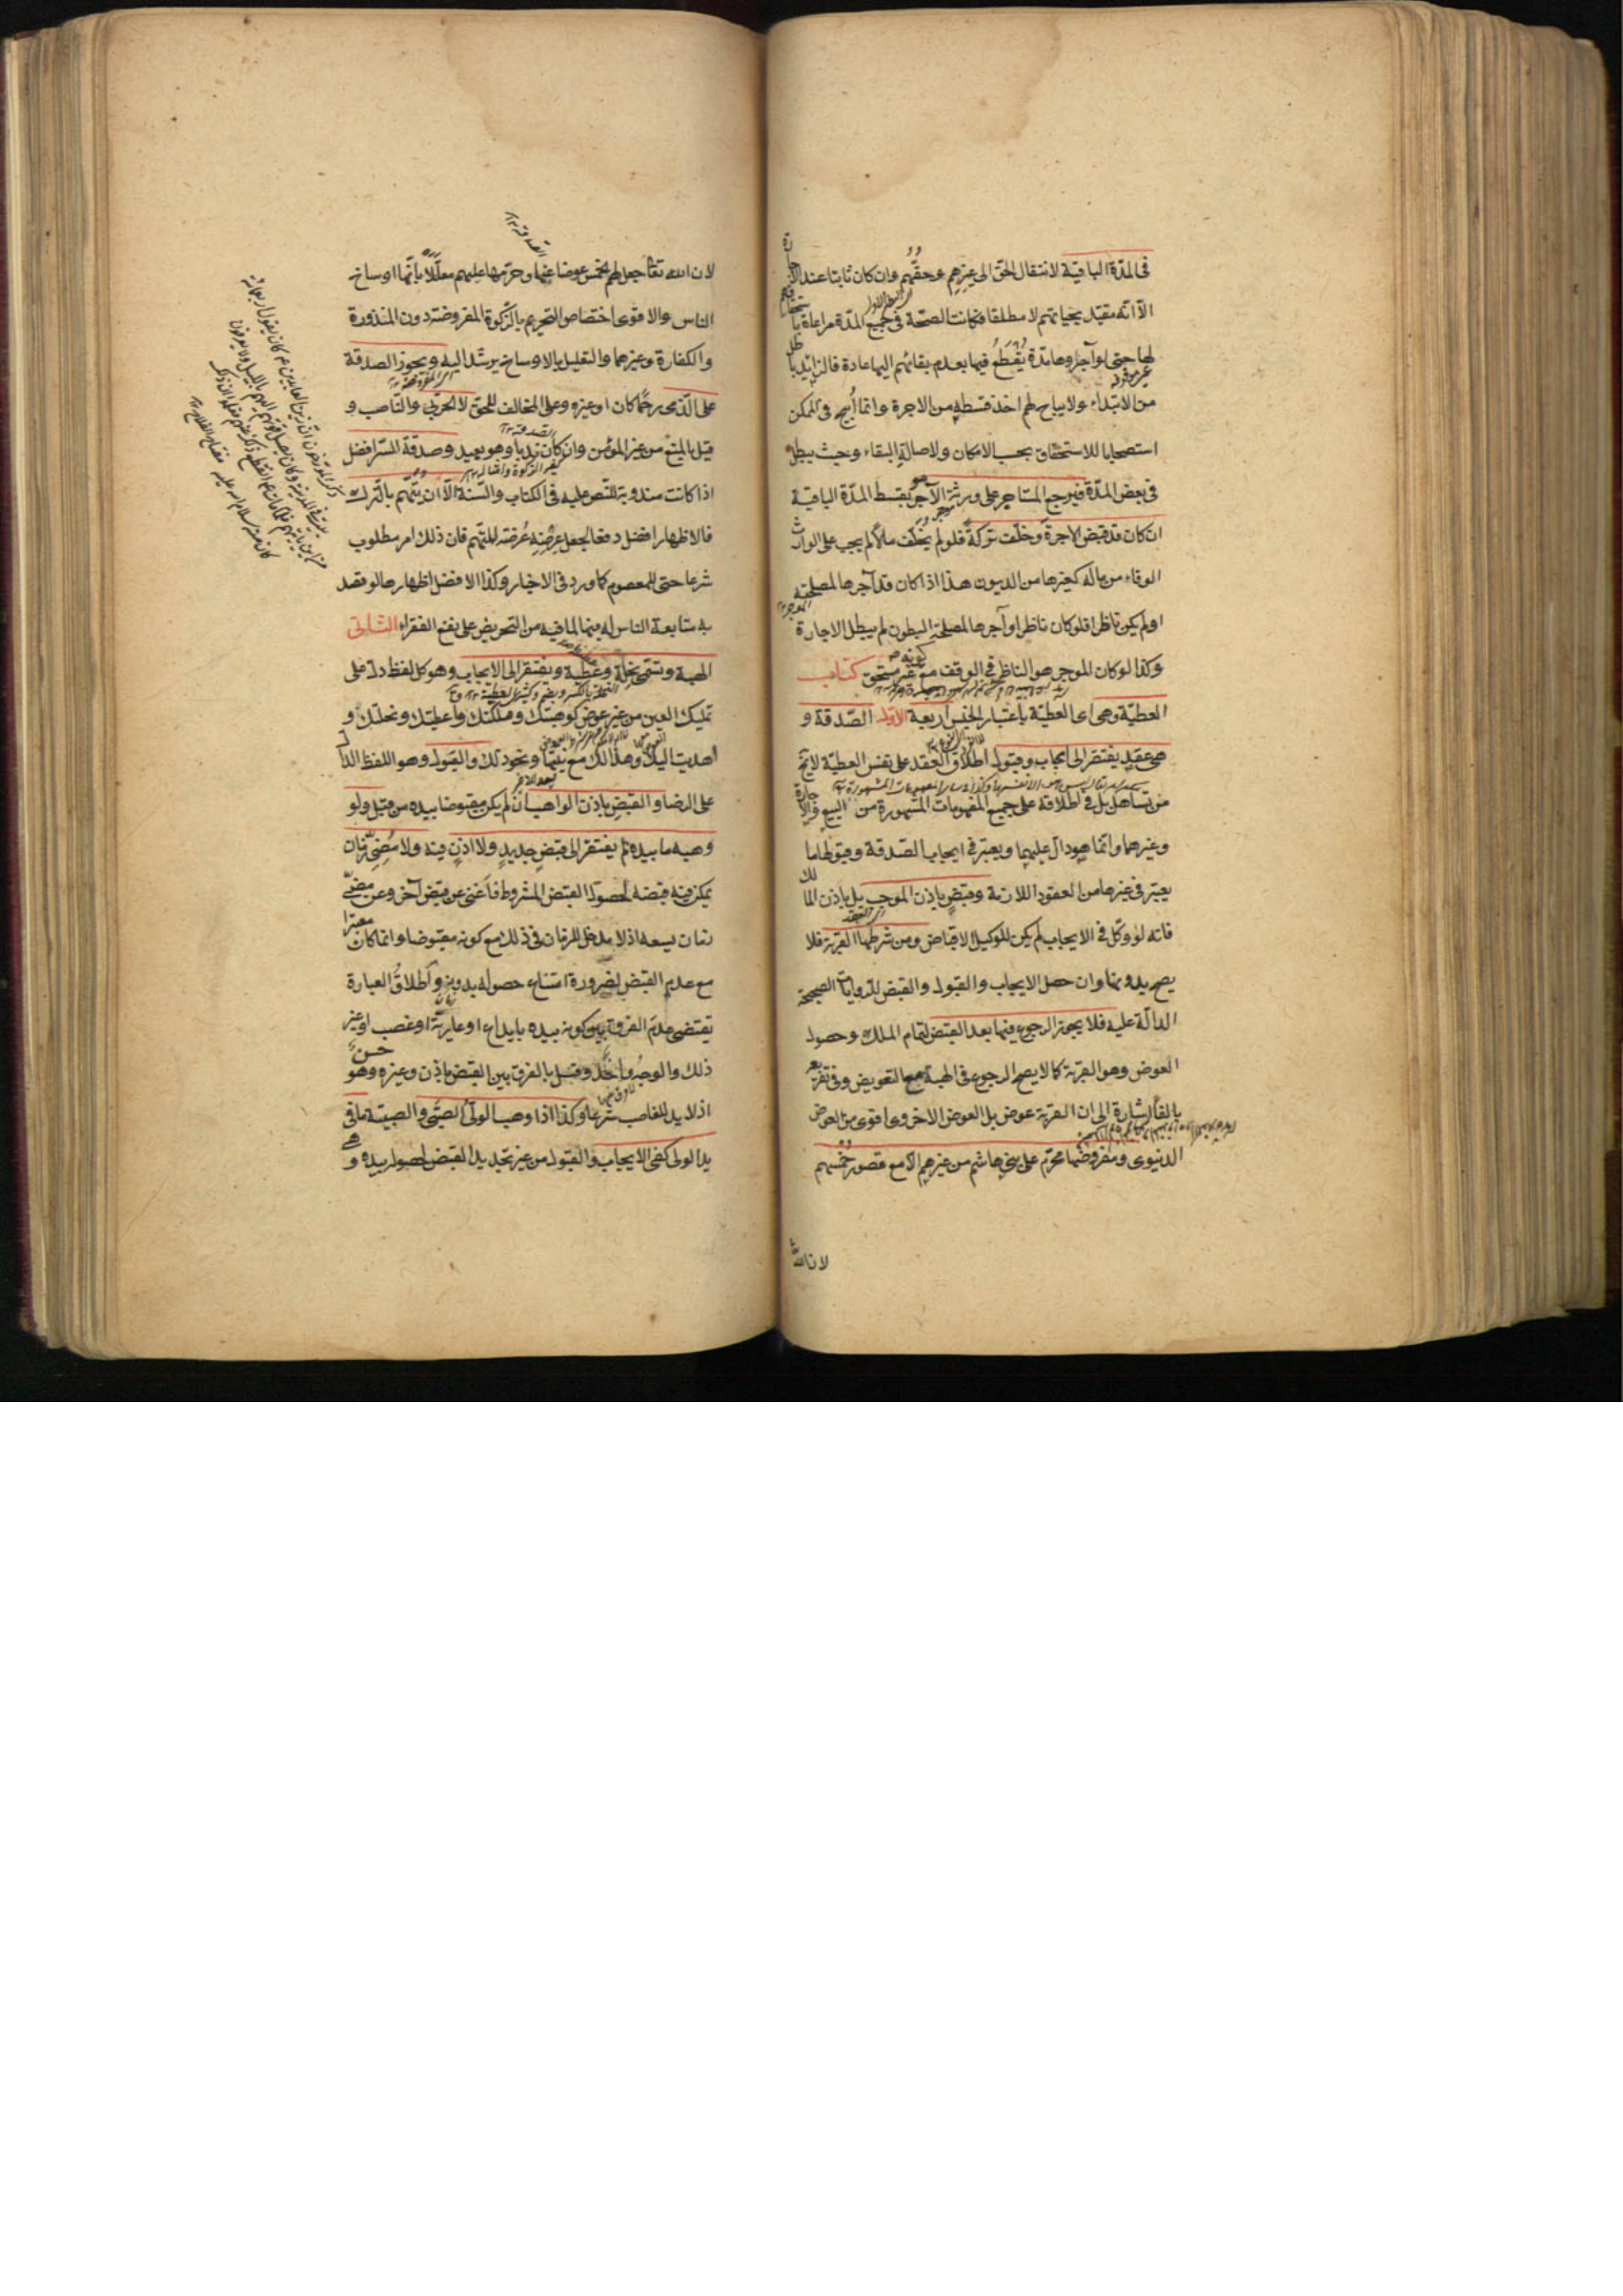 فى المدّة الباقية لانتقال الحق الى غيرهم وحقّهم وان كان ثابتا عند الاجارة
الّا انّه مقيّد بحياتهم لا مطلقا فكانت الصحّة فى جميع المدّة مراعاة باستحقاقهم
لها حتى لو آجروها مدّة يُقْطَعُ فيها بعدم بقائهم اليها عادة فالزايد باطل
من الابتداء ولا يباح لهم اخذ قسطه من الاجرة وانّما أُبيح فى الممكن
استصحابا للاستحقاق بحسب الامكان ولاصالة البقاء وحيث يبطل
فى بعض المدّة فيرجع المستاجر على ورثة الآجر بقسط المدّة الباقية
ان كان قد قبض الاجرة وخلّف تركة فلو لم يخلّف مالاً لم يجب على الوارث
الوفاء من ماله كغيرها من الديون هذا اذا كان قد آجرها لمصلحته
او لم يكن ناظرا فلو كان ناظرا وآجرها لمصلحة البطون لم يبطل الاجارة
وكذا لو كان الموجر هو الناظر فى الوقف مع كونه غير مستحق كتاب
العطيّة وهى اى العطيّة باعتبار الجنس اربعة الأوّل الصّدقة و
هى عقد يفتقر الى ايجاب وقبول اطلاق العقد على نفس العطيّة لا يخ
من تساهل بل فى اطلاقه على جميع المفهومات المشهورة من البيع والاجارة
وغيرهما وانّما هو دالّ عليها ويعتبر فى ايجاب الصّدقة وقبولها ما
يعتبر فى غيرها من العقود اللازمة وقبض باذن الموجب بل باذن المالك
فانه لو وكّل فى الايجاب لم يكن للوكيل الاقباض ومن شرطها القربة فلا
يصح بدونها وان حصل الايجاب والقبول والقبض للروايات الصحيحة
الدالّة عليه فلا يجوز الرجوع فيها بعد القبض لتمام الملك وحصول
العوض وهو القربة كما لا يصح الرجوع فى الهبة مع التعويض وفى تفريعه
بالفاء اشارة الى ان القربة عوض بل العوض الاخروى اقوى من العوض
الدنيوى ومفروضها محرّم على بنى هاشم من غيرهم الّا مع قصور خمسهم
لان الله
لان الله تعالى جعل لهم الخمس عوضا عنها وحرّمها عليهم معلّلاً بانّها اوساخ
الناس والاقوى اختصاص التحريم بالزّكوة المفروضة دون المنذورة
والكفارة وغيرهما والتعليل بالاوساخ يرشد اليه ويجوز الصدقة
على الذّمى رحمًا كان او غيره وعلى المخالف للحق لا الحربى والنّاصب و
قيل بالمنع من غير المؤمن وان كان ندبا وهو بعيد وصدقة السّر افضل
اذا كانت مندوبة للنّص عليه فى الكتاب والسّنة الّا ان يتّهم بالترك
فالاظهار افضل دفعا لجعل عِرْضِهِ عُرْضة للتّهم فان ذلك امر مطلوب
شرعا حتى للمعصوم كما ورد فى الاخبار وكذا الافضل اظهارها لو قصد
به متابعة الناس له فيها لما فيه من التحريض على نفع الفقراء الثانى
الهبة وتسمّى نحلة وعطية ويفتقر الى الايجاب وهو كل لفظ دلّ على
تمليك العين من غير عوض كوهبتك وملّكتك واعطيتك ونحلتك و
اهديت اليك وهذا لك مع نيّتها ونحو ذلك والقبول وهو اللفظ الدال
على الرضا والقبض باذن الواهب ان لم يكن مقبوضا بيده من قبل ولو
وهبه ما بيده لم يفتقر الى قبض جديد ولا اذن فيه ولا مُضِىّ زمان
يمكن فيه قبضه لحصول القبض المشروط فاغنى عن قبض آخر وعن مضىّ
زمان يسعه اذ لا مدخل للزمان فى ذلك مع كونه مقبوضا وانما كان معتبرا
مع عدم القبض لضرورة امتناع حصوله بدونه واطلاقُ العبارة
يقتضى عدم الفرق بين كونه بيده بايداع او عارية او غصب او غير
ذلك والوجهُ واحد وقيل بالفرق بين القبض باذن وغيره وهو حسن
اذ لا يد للغاصب شرعا وكذا اذا وهب الولىُّ الصبّى والصبيّة ما فى
يد الولى كفى الايجاب والقبول من غير تجديد القبض لحصوله بيده و هى